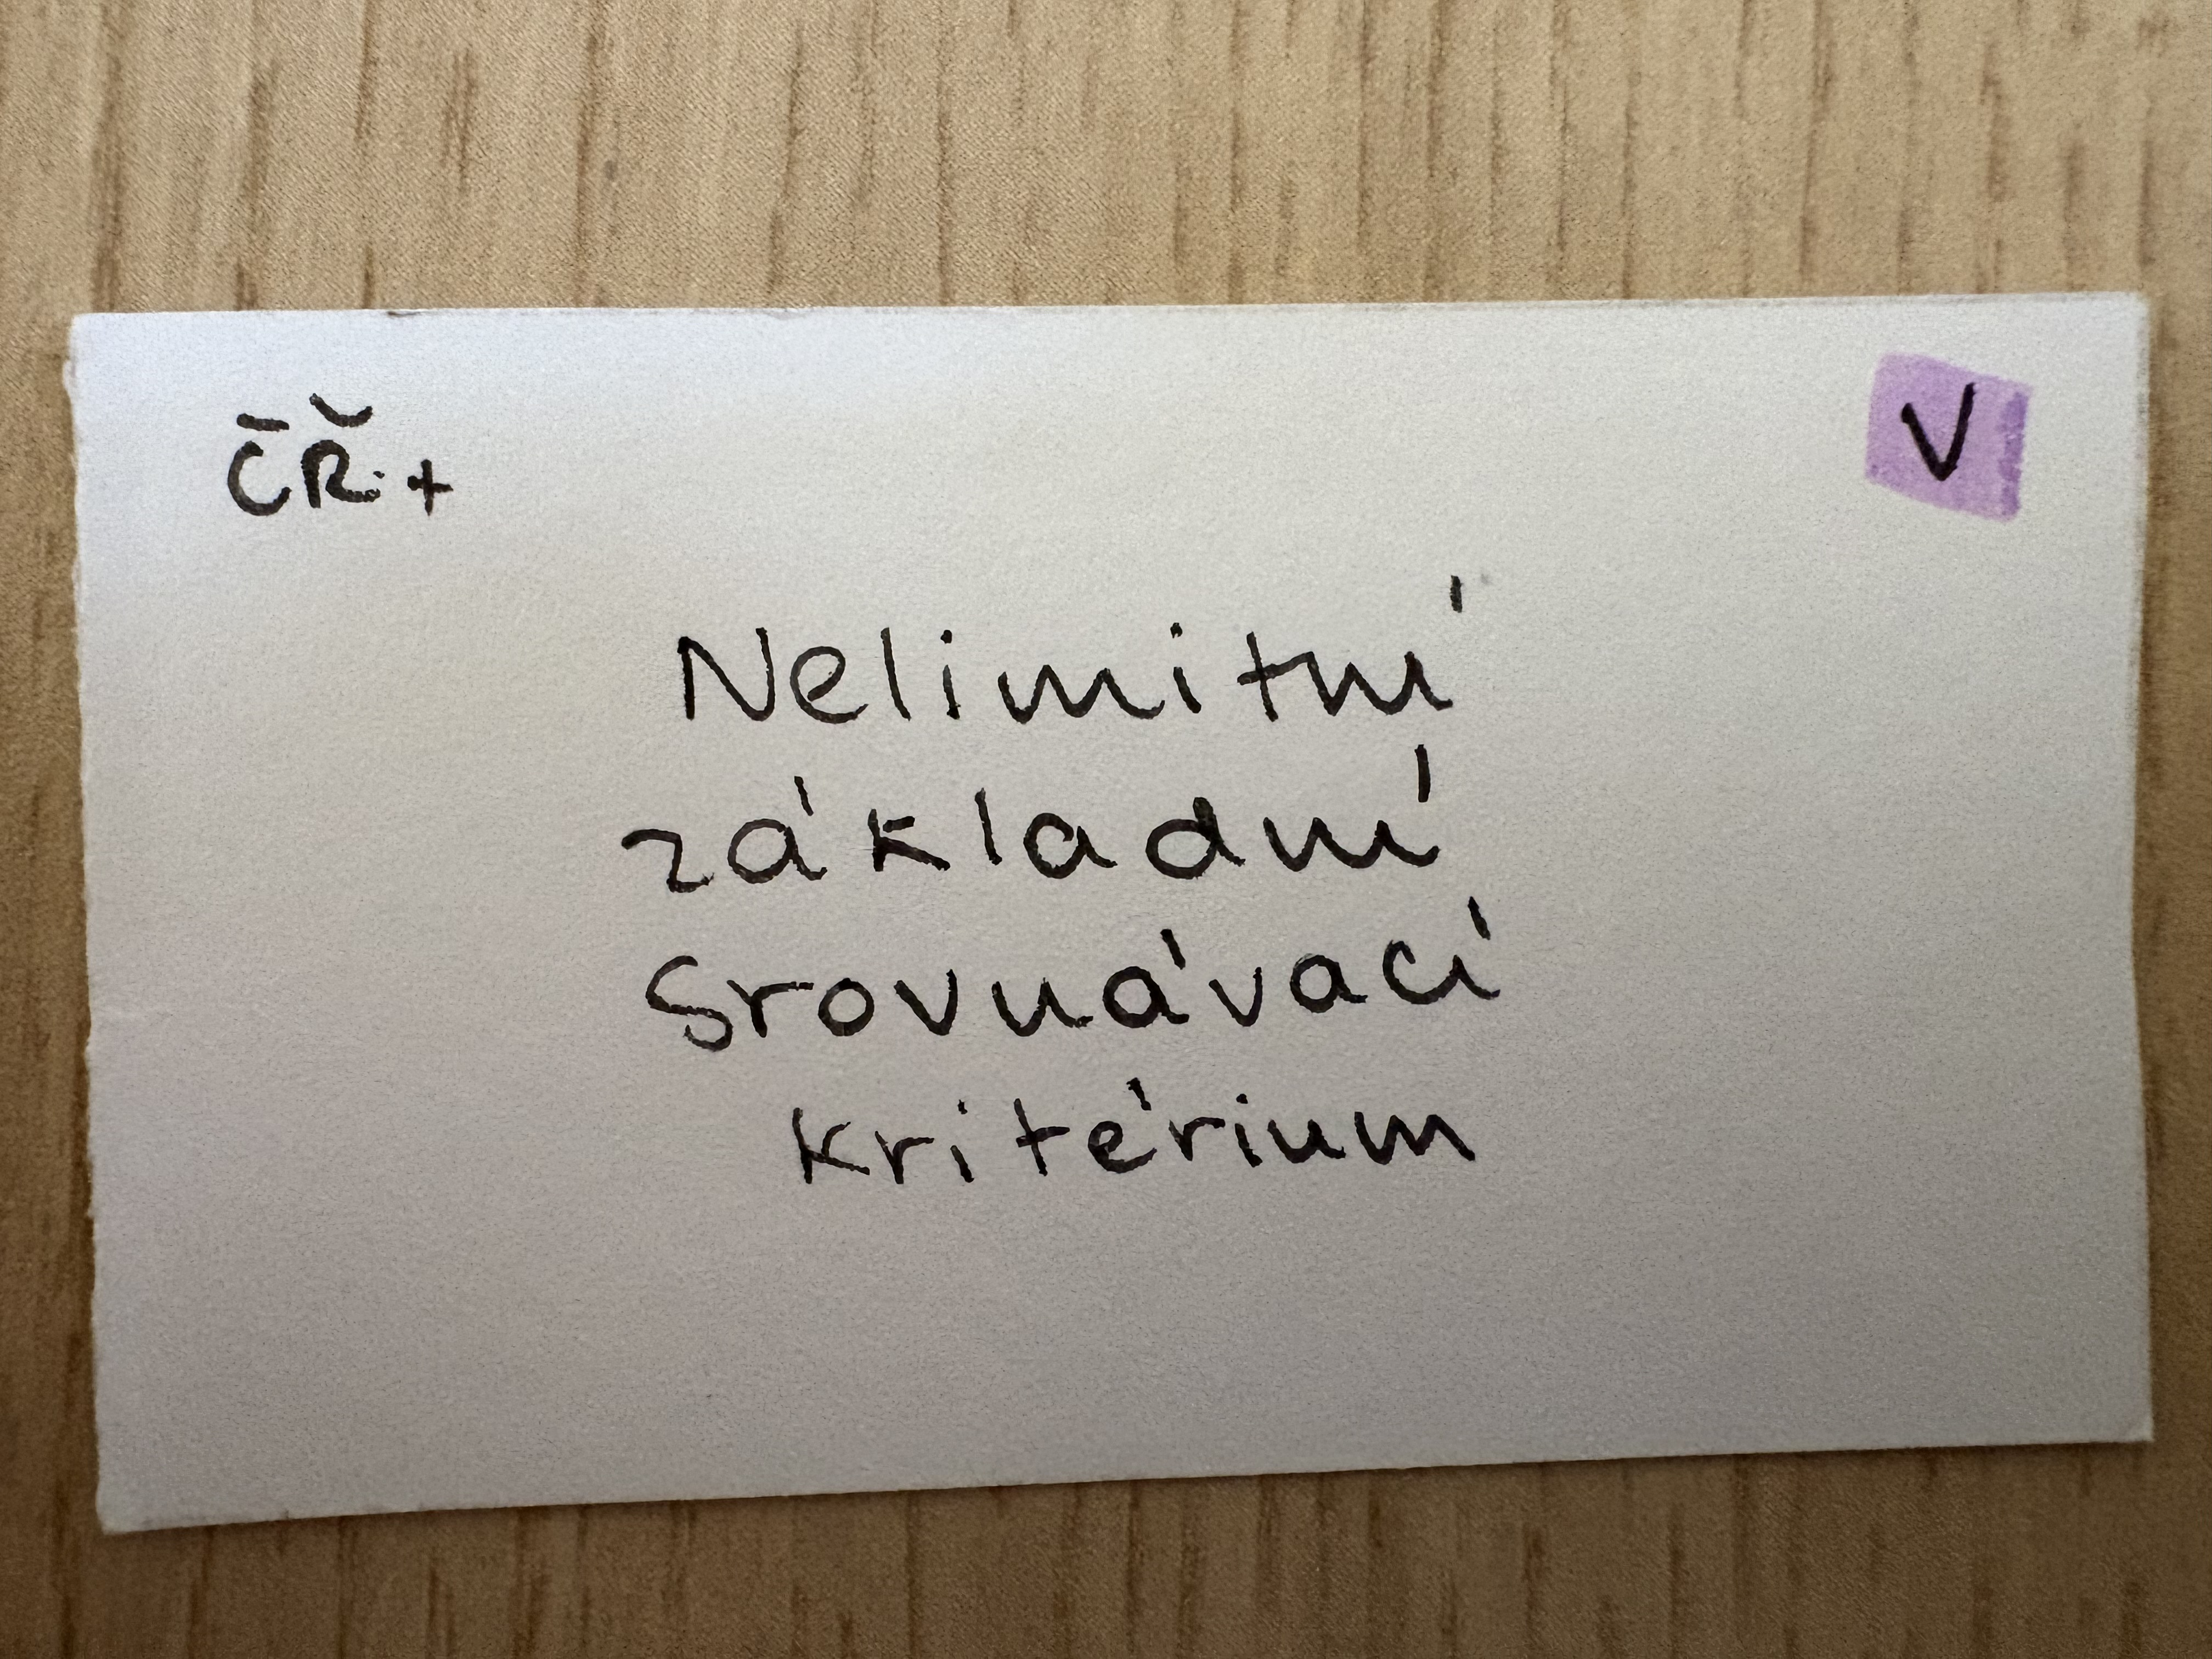 ČŘ.+
V
Nelimitní
základní
Srovnávací
kritérium